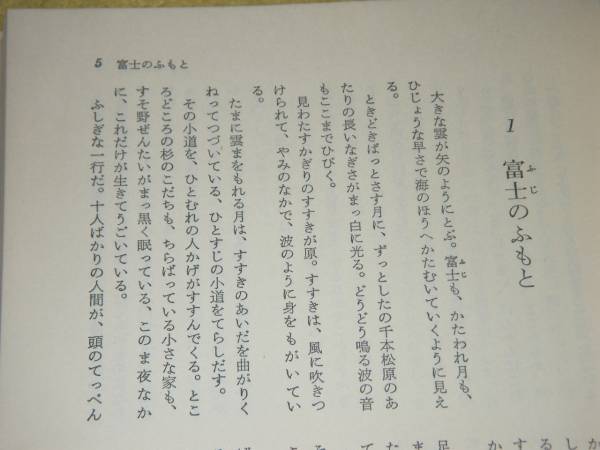 5 富士のふもと
1 富士のふもと
ふじ
大きな雲が矢のようにとぶ。富士も、かたわれ月も、
ふじ
ひじょうな早さで海のほうへかたむいていくように見え
る。
ときどきぱっとさす月に、ずっとしたの千本松原のあ
たりの長いなぎさがまっ白に光る。どうどう鳴る波の音
もここまでひびく。
見わたすかぎりのすすきが原。すすきは、風に吹きつ
けられて、やみのなかで、波のように身をもがいてい
る。
たまに雲まをもれる月は、すすきのあいだを曲がりく
ねってつづいている、ひとすじの小道をてらしだす。
その小道を、ひとむれの人かげがすすんでくる。とこ
ろどころの杉のこだちも、ちらばっている小さな家も、
すそ野ぜんたいがまっ黒く眠っている、このま夜なか
に、これだけが生きてうごいている。
ふしぎな一行だ。十人ばかりの人間が、頭のてっぺん